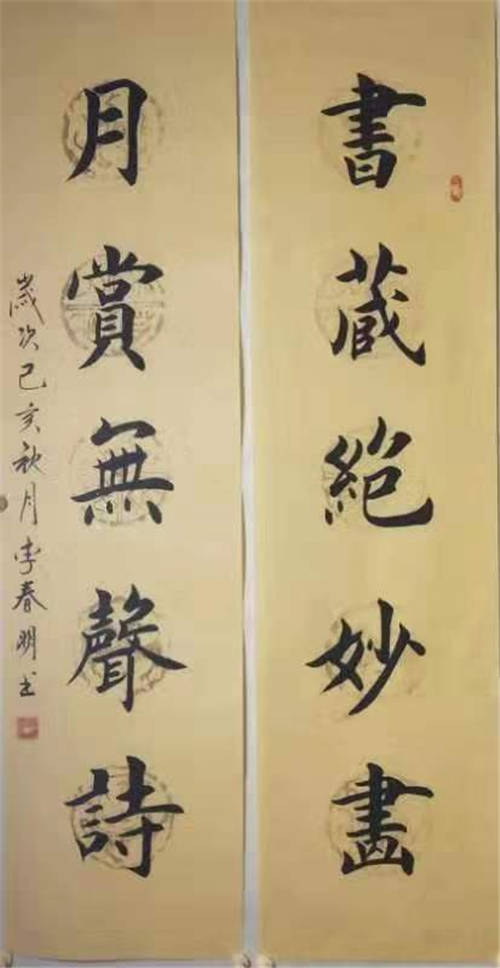 書藏絕妙畫
月賞無聲詩
歲次己亥秋月李春明書